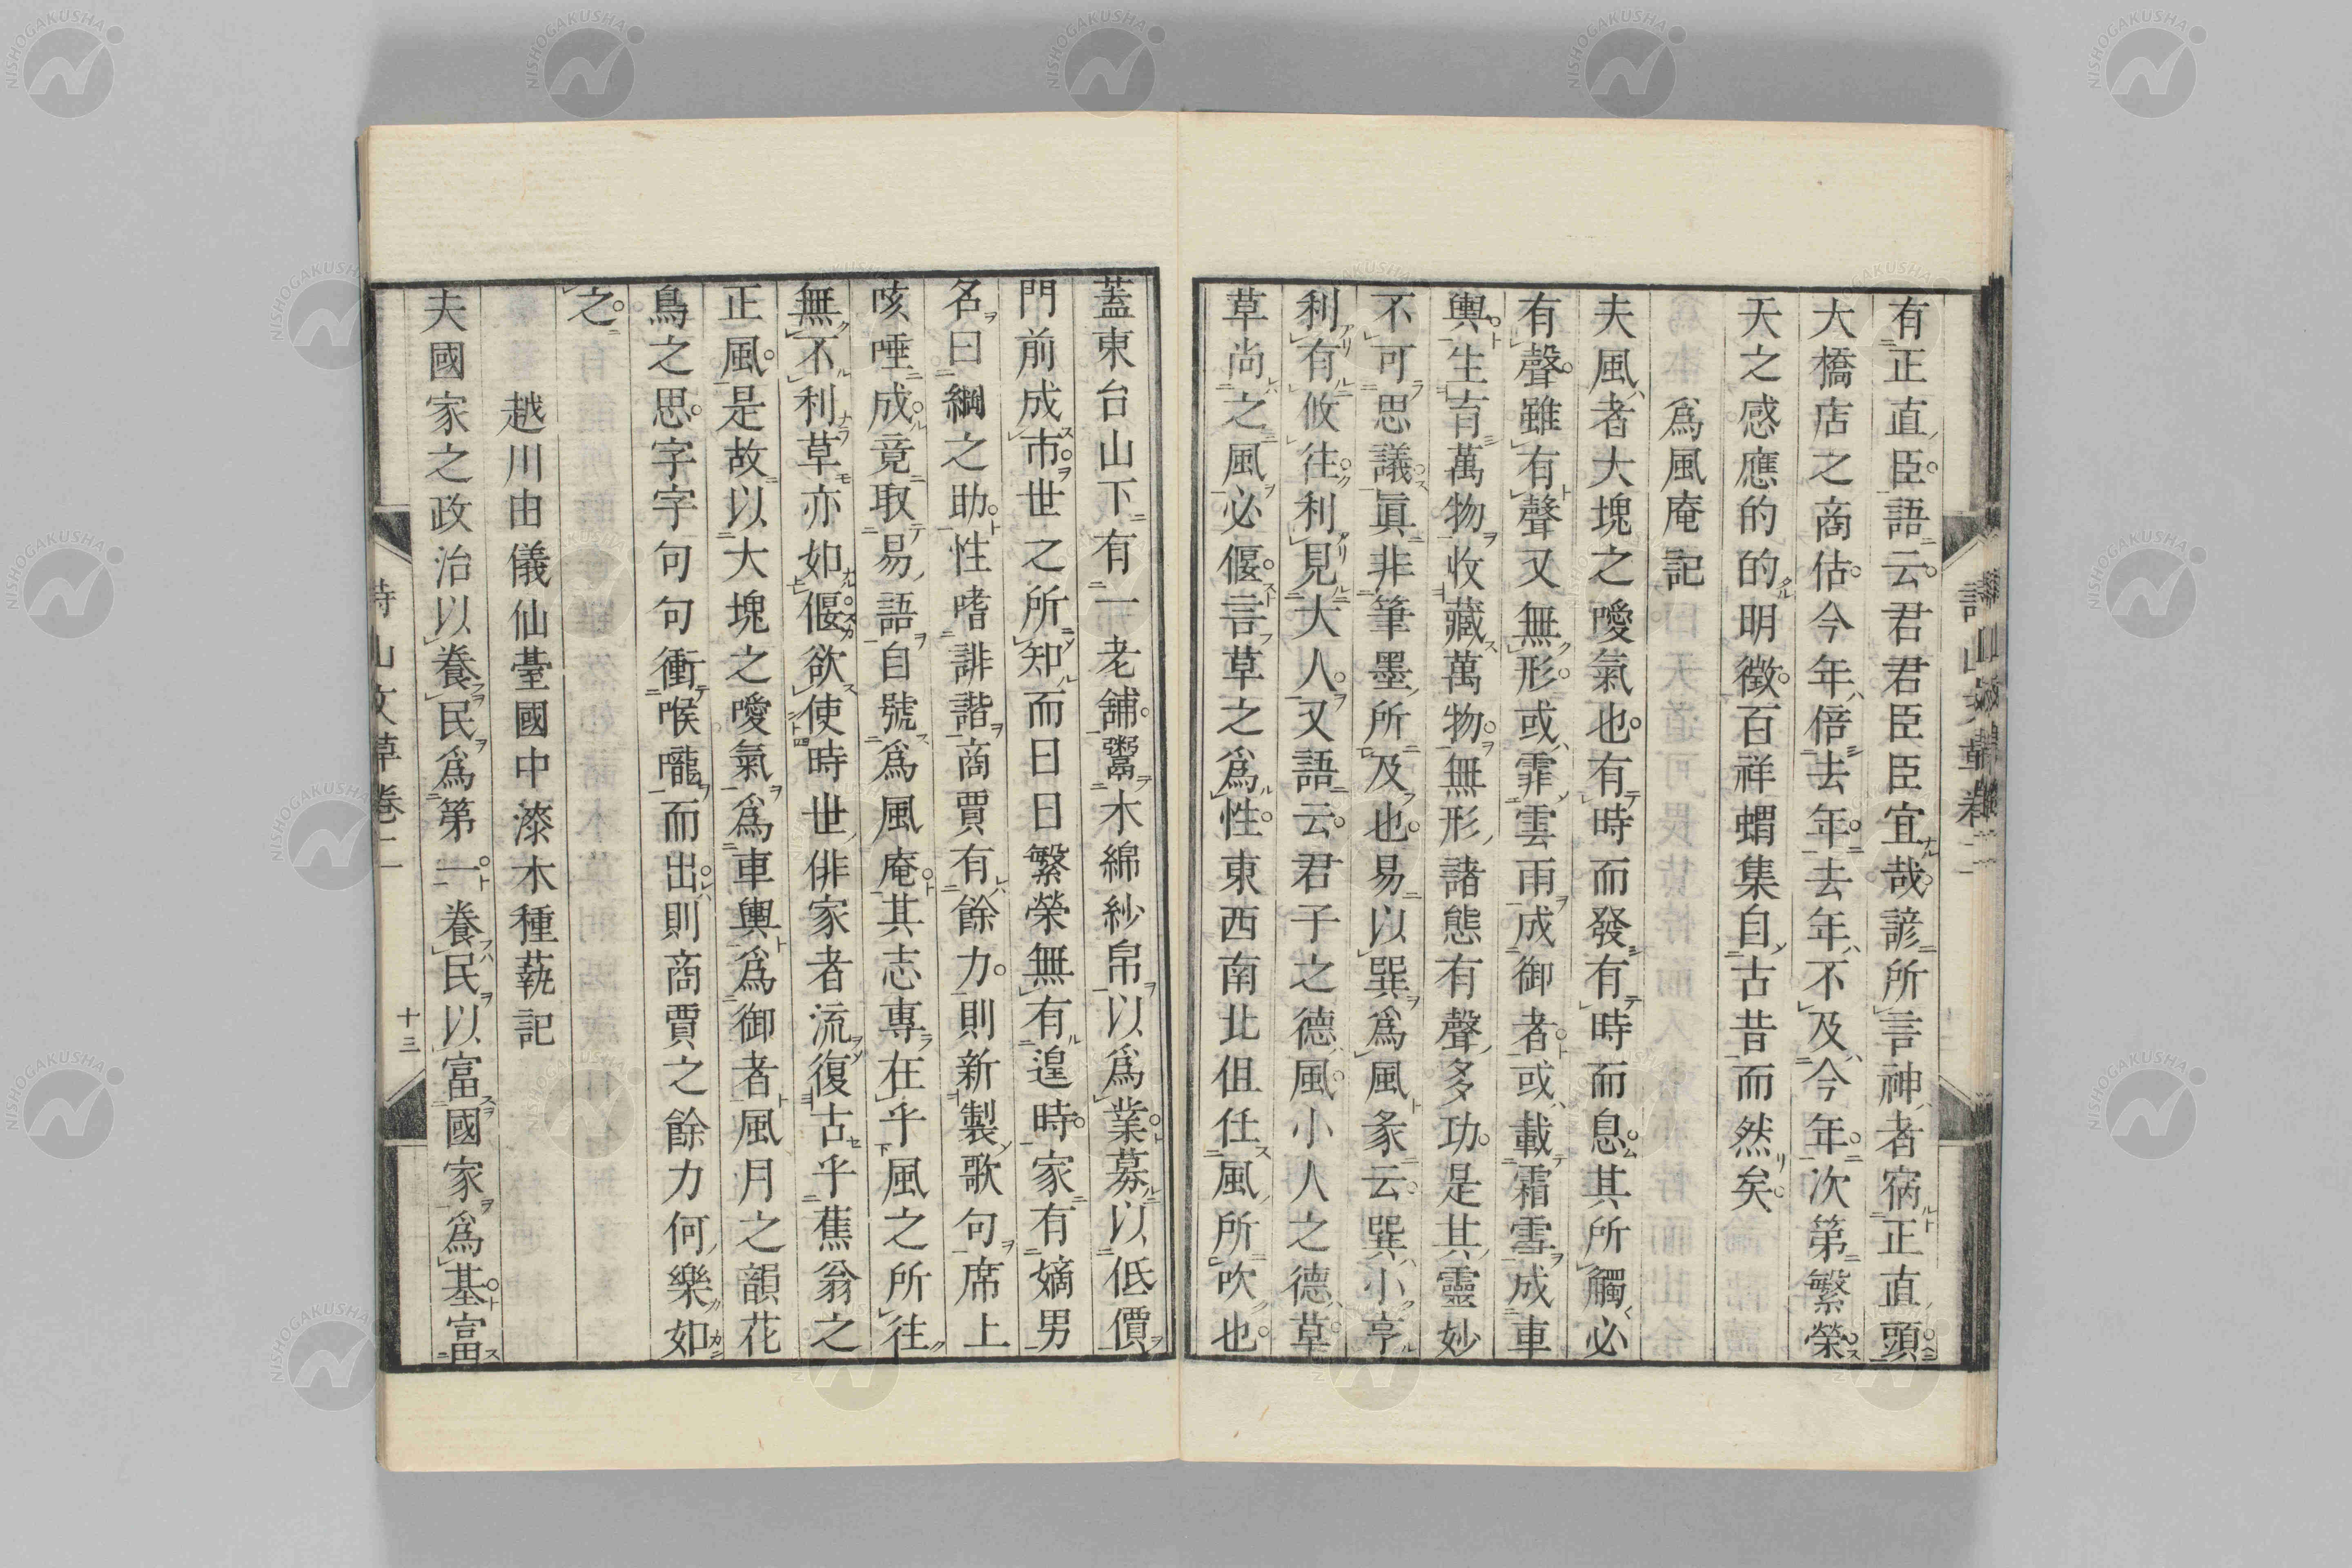 有正直臣語云君君臣臣宜哉諺所言神者宿正直頭
大橋店之商估今年倍去年去年不及今年次第繁榮
天之感應的的明徵百祥蝟集自古昔而然矣
爲風庵記
夫風者大塊之噯氣也有時而發有時而息其所觸必
有聲雖有聲又無形或霏雲雨成御者或載霜雪成車
輿生育萬物收藏萬物無形諸態有聲多功是其靈妙
不可思議眞非筆墨所及也易以巽爲風彖云巽小亨
利有攸往利見大人又語云君子之德風小人之德草
草尚之風必偃言草之爲性東西南北但任風所吹也
蓋東台山下有一老舖鬻木綿紗帛以爲業募以低價
門前成市世之所知而日日繁榮無有遑時家有嫡男
名曰綱之助性嗜誹諧商賈有餘力則新製歌句席上
咳唾成竟取易語自號爲風庵其志專在乎風之所往
無不利草亦如偃欲使時世俳家者流復古乎蕉翁之
正風是故以大塊之噯氣爲車輿爲御者風月之韻花
鳥之思字字句句衝喉嚨而出則商賈之餘力何樂如
之
越川由儀仙臺國中漆木種蓺記
夫國家之政治以養民爲第一養民以富國家爲基富
詩山文草卷二
十三